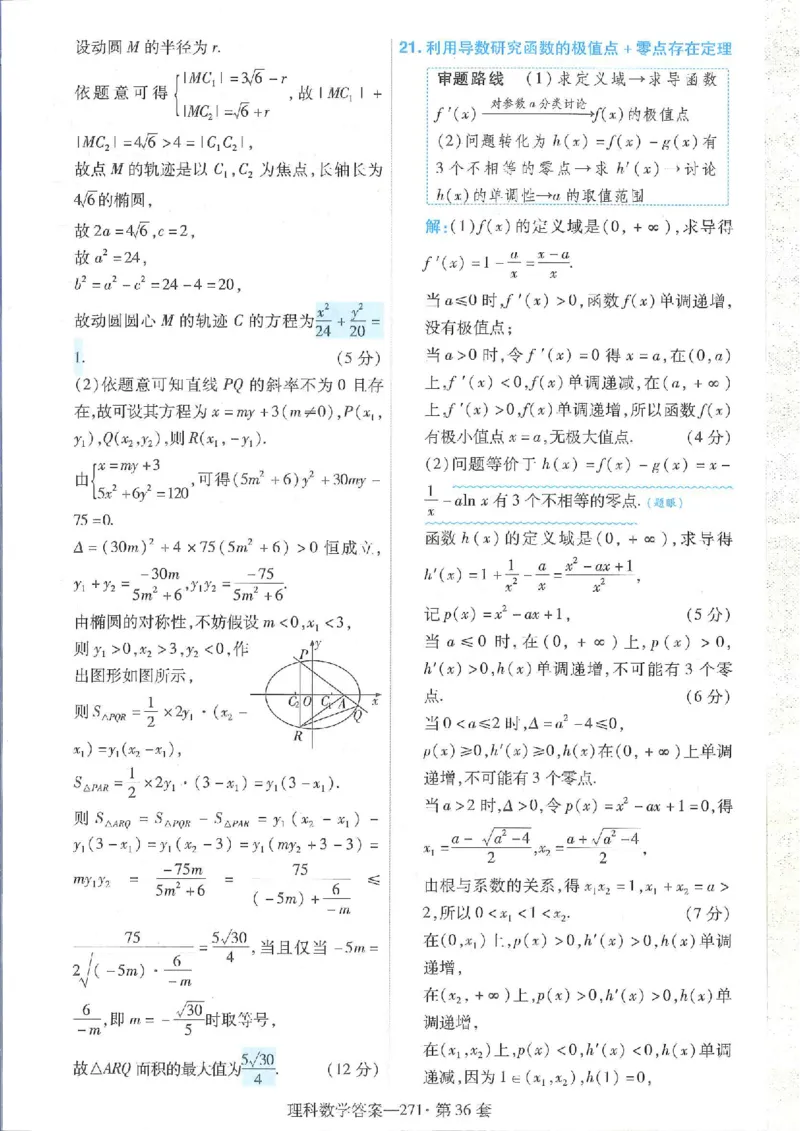 设动圆 M 的半径为 r.
依题意可得{|MC₁|=3√6-r, |MC₂|=√6+r, 故|MC₁|+
|MC₂|=4√6>4=|C₁C₂|,
故点 M 的轨迹是以 C₁,C₂ 为焦点,长轴长为
4√6的椭圆,
故 2a=4√6,c=2,
故 a²=24,
b²=a²-c²=24-4=20,
故动圆圆心 M 的轨迹 C 的方程为x²/24+y²/20=
1. (5 分)
(2)依题意可知直线 PQ 的斜率不为 0 且存
在,故可设其方程为 x=my+3(m≠0),P(x₁,
y₁),Q(x₂,y₂),则 R(x₁,-y₁).
由{x=my+3, 5x²+6y²=120, 可得(5m²+6)y²+30my-
75=0.
Δ=(30m)²+4×75(5m²+6)>0 恒成立,
y₁+y₂=-30m/(5m²+6),y₁y₂=-75/(5m²+6).
由椭圆的对称性,不妨假设 m<0,x₁<3,
则 y₁>0,x₂>3,y₂<0,作
出图形如图所示,
y
P
C₂ O C₁ A x
Q
R
则 S△PQR=1/2×2y₁·(x₂-
x₁)=y₁(x₂-x₁),
S△PAR=1/2×2y₁·(3-x₁)=y₁(3-x₁).
则 S△ARQ=S△PQR-S△PAR=y₁(x₂-x₁)-
y₁(3-x₁)=y₁(x₂-3)=y₁(my₂+3-3)=
my₁y₂=-75m/(5m²+6)=75/((-5m)+6/(-m))≤
75/(2√((-5m)·6/(-m)))=5√30/4,当且仅当-5m=
6/(-m),即 m=-√30/5时取等号,
故△ARQ 面积的最大值为5√30/4. (12 分)
21. 利用导数研究函数的极值点+零点存在定理
审题路线 (1)求定义域→求导函数
f′(x) 对参数 a 分类讨论→f(x)的极值点
(2)问题转化为 h(x)=f(x)-g(x)有
3 个不相等的零点→求 h′(x)→讨论
h(x)的单调性→a 的取值范围
解:(1)f(x)的定义域是(0,+∞),求导得
f′(x)=1-a/x=(x-a)/x.
当 a≤0 时,f′(x)>0,函数 f(x)单调递增,
没有极值点;
当 a>0 时,令 f′(x)=0 得 x=a,在(0,a)
上,f′(x)<0,f(x)单调递减,在(a,+∞)
上,f′(x)>0,f(x)单调递增,所以函数 f(x)
有极小值点 x=a,无极大值点. (4 分)
(2)问题等价于 h(x)=f(x)-g(x)=x-
1/x-aln x 有 3 个不相等的零点.(题眼)
函数 h(x)的定义域是(0,+∞),求导得
h′(x)=1+1/x²-a/x=(x²-ax+1)/x²,
记 p(x)=x²-ax+1, (5 分)
当 a≤0 时,在(0,+∞)上,p(x)>0,
h′(x)>0,h(x)单调递增,不可能有 3 个零
点. (6 分)
当 0<a≤2 时,Δ=a²-4≤0,
p(x)≥0,h′(x)≥0,h(x)在(0,+∞)上单调
递增,不可能有 3 个零点.
当 a>2 时,Δ>0,令 p(x)=x²-ax+1=0,得
x₁=(a-√(a²-4))/2,x₂=(a+√(a²-4))/2,
由根与系数的关系,得 x₁x₂=1,x₁+x₂=a>
2,所以 0<x₁<1<x₂. (7 分)
在(0,x₁)上,p(x)>0,h′(x)>0,h(x)单调
递增,
在(x₂,+∞)上,p(x)>0,h′(x)>0,h(x)单
调递增,
在(x₁,x₂)上,p(x)<0,h′(x)<0,h(x)单调
递减,因为 1∈(x₁,x₂),h(1)=0,
理科数学答案—271·第 36 套